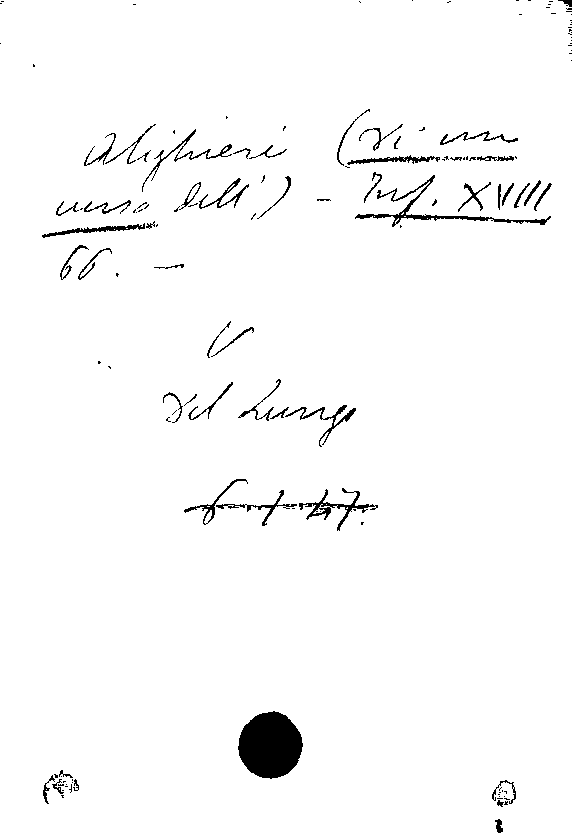 Alighieri (Di un
verso dell',) - Inf. XVIII
66. -
V
Del Lungo
6 I 47.